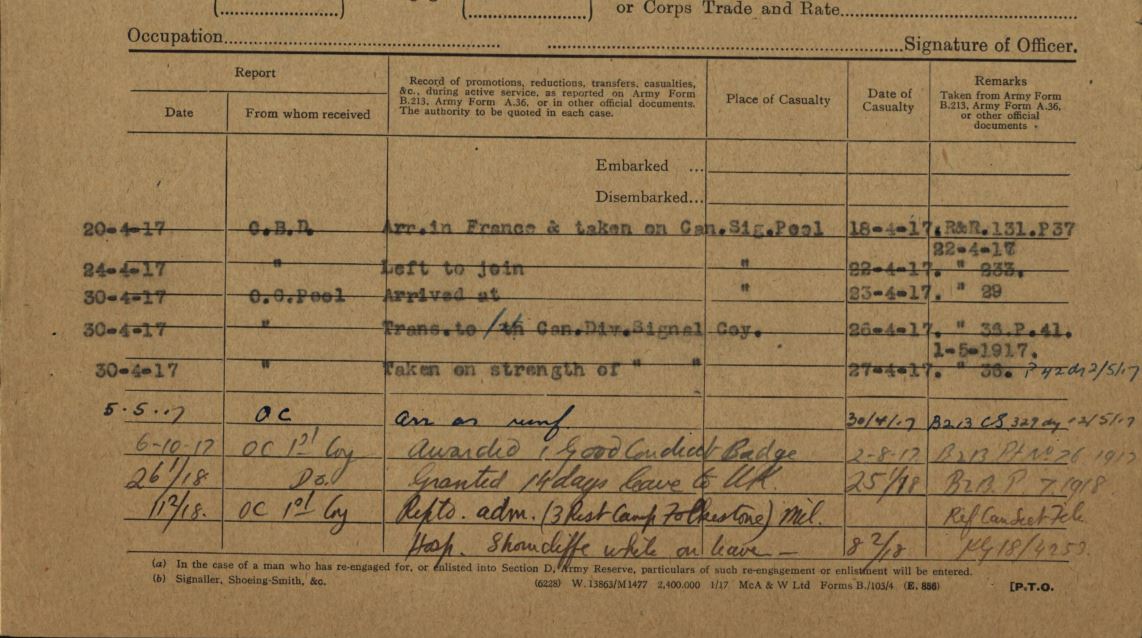 or Corps Trade and Rate
Occupation
Signature of Officer.
Report
Record of promotions, reductions, transfers, casualties, &c., during active service, as reported on Army Form B.213, Army Form A.36, or in other official documents. The authority to be quoted in each case.
Place of Casualty
Date of Casualty
Remarks
Taken from Army Form B.213, Army Form A.36, or other official documents
Date
From whom received
Embarked ...
Disembarked...
20-4-17 C.B.D. Arr.in France & taken on Can.Sig.Pool 18-4-17. R&R.131.P37
22-4-17
24-4-17 " Left to join " 22-4-17. " 233.
30-4-17 O.C.Pool Arrived at " 23-4-17. " 29
30-4-17 " Trans.to 1th Can.Div.Signal Coy. 26-4-17. " 36.P.41.
1-5-1917.
30-4-17 " Taken on strength of " " 27-4-17. " 36. P 42 d/ 2/5/17
5.5.17 OC arr as reinf 30/4/17 B213 CS 12/5/17
6-10-17 OC 1st Coy Awarded 1 Good Conduct Badge 2-8-17 B213 Pt No 26 1917
26 1/18 Do. Granted 14 days leave to U.K. 25 1/18 B213. P. 7. 1918
OC 1st Coy Reptd. adm. (3 Rest Camp Folkestone) Mil.
Hosp. Shorncliffe while on leave — 8 2/18
(a) In the case of a man who has re-engaged for, or enlisted into Section D, Army Reserve, particulars of such re-engagement or enlistment will be entered.
(b) Signaller, Shoeing-Smith, &c.
(6228) W.13863/M1477 2,400,000 1/17 McA & W Ltd Forms B./103/4 (E. 856)
[P.T.O.